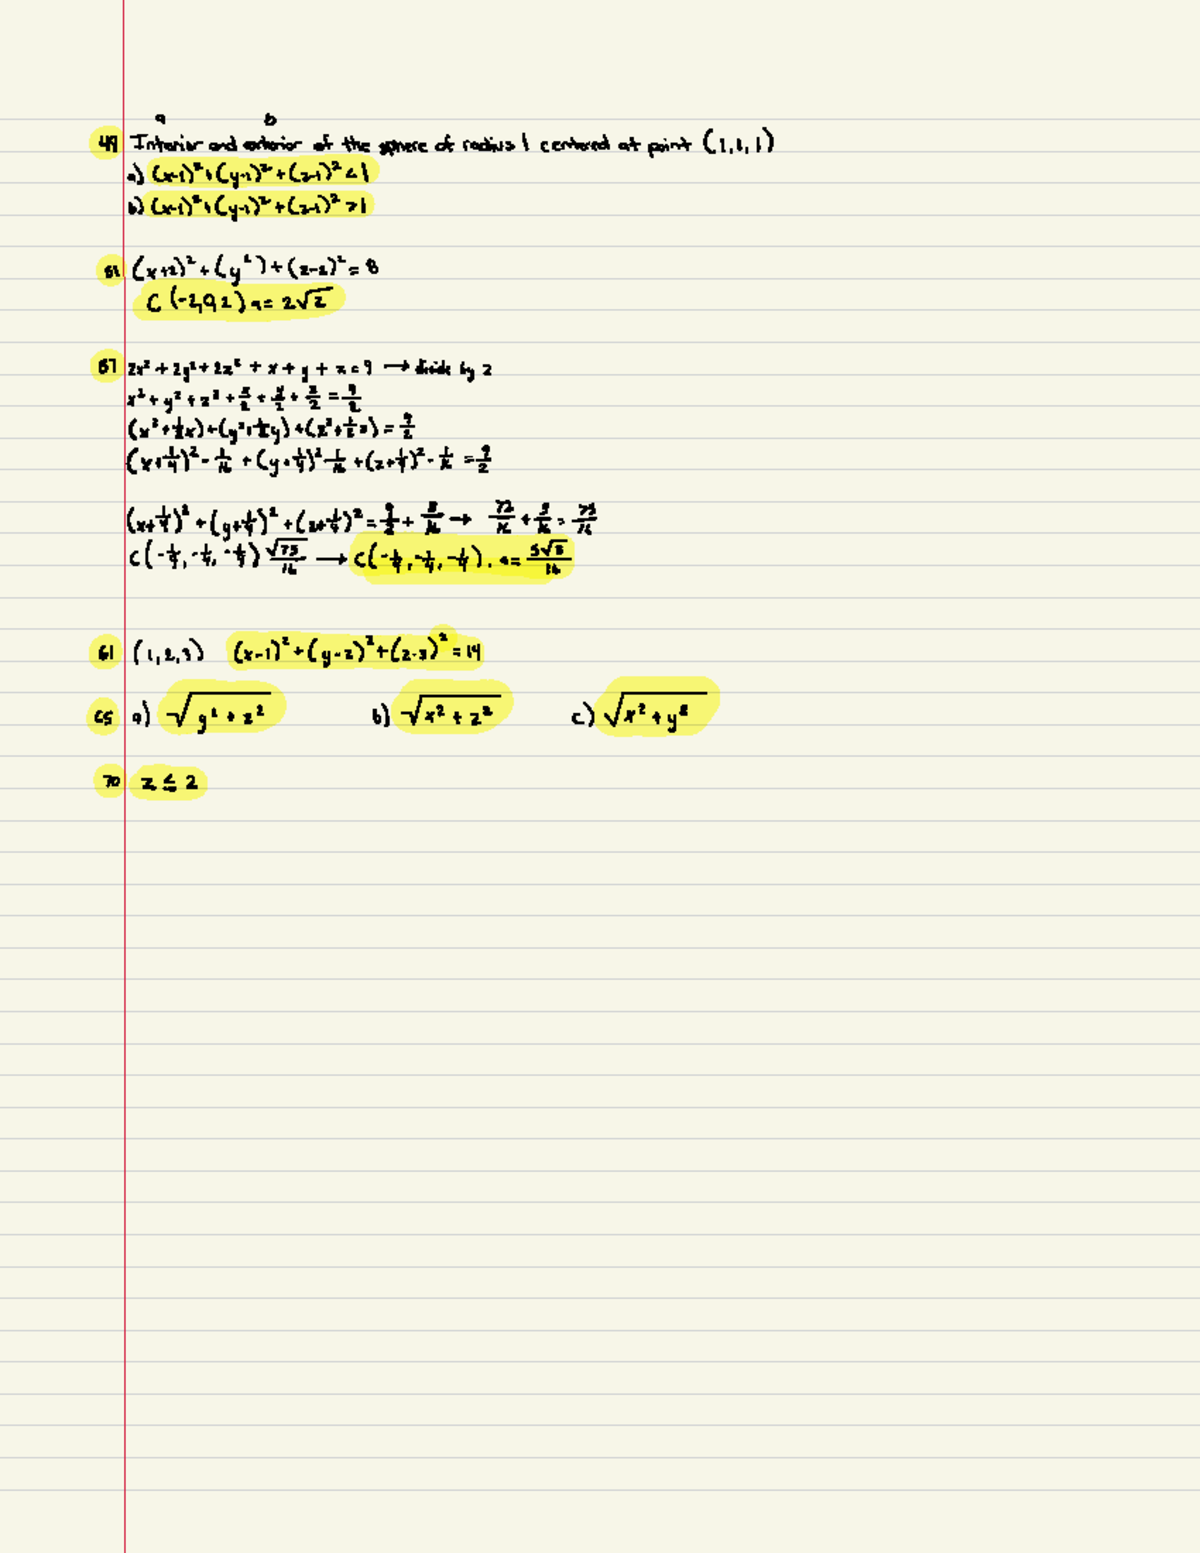 a b
49 Interior and exterior of the sphere of radius 1 centered at point (1,1,1)
a) (x-1)²+(y-1)²+(z-1)² < 1
b) (x-1)²+(y-1)²+(z-1)² > 1
51 (x+2)²+(y²)+(z-2)² = 8
C (-2,0,2) a = 2√2
57 2x² + 2y² + 2z² + x + y + z = 9 → divide by 2
x² + y² + z² + x/2 + y/2 + z/2 = 9/2
(x²+1/2x)+(y²+1/2y)+(z²+1/2z) = 9/2
(x+1/4)² - 1/16 + (y+1/4)² - 1/16 + (z+1/4)² - 1/16 = 9/2
(x+1/4)² + (y+1/4)² + (z+1/4)² = 9/2 + 3/16 → 72/16 + 3/16 = 75/16
C(-1/4, -1/4, -1/4) √75/16 → C(-1/4, -1/4, -1/4), a = 5√3/16
61 (1,2,3) (x-1)²+(y-2)²+(z-3)² = 14
65 a) √y² + z² b) √x² + z² c) √x² + y²
70 z ≤ 2